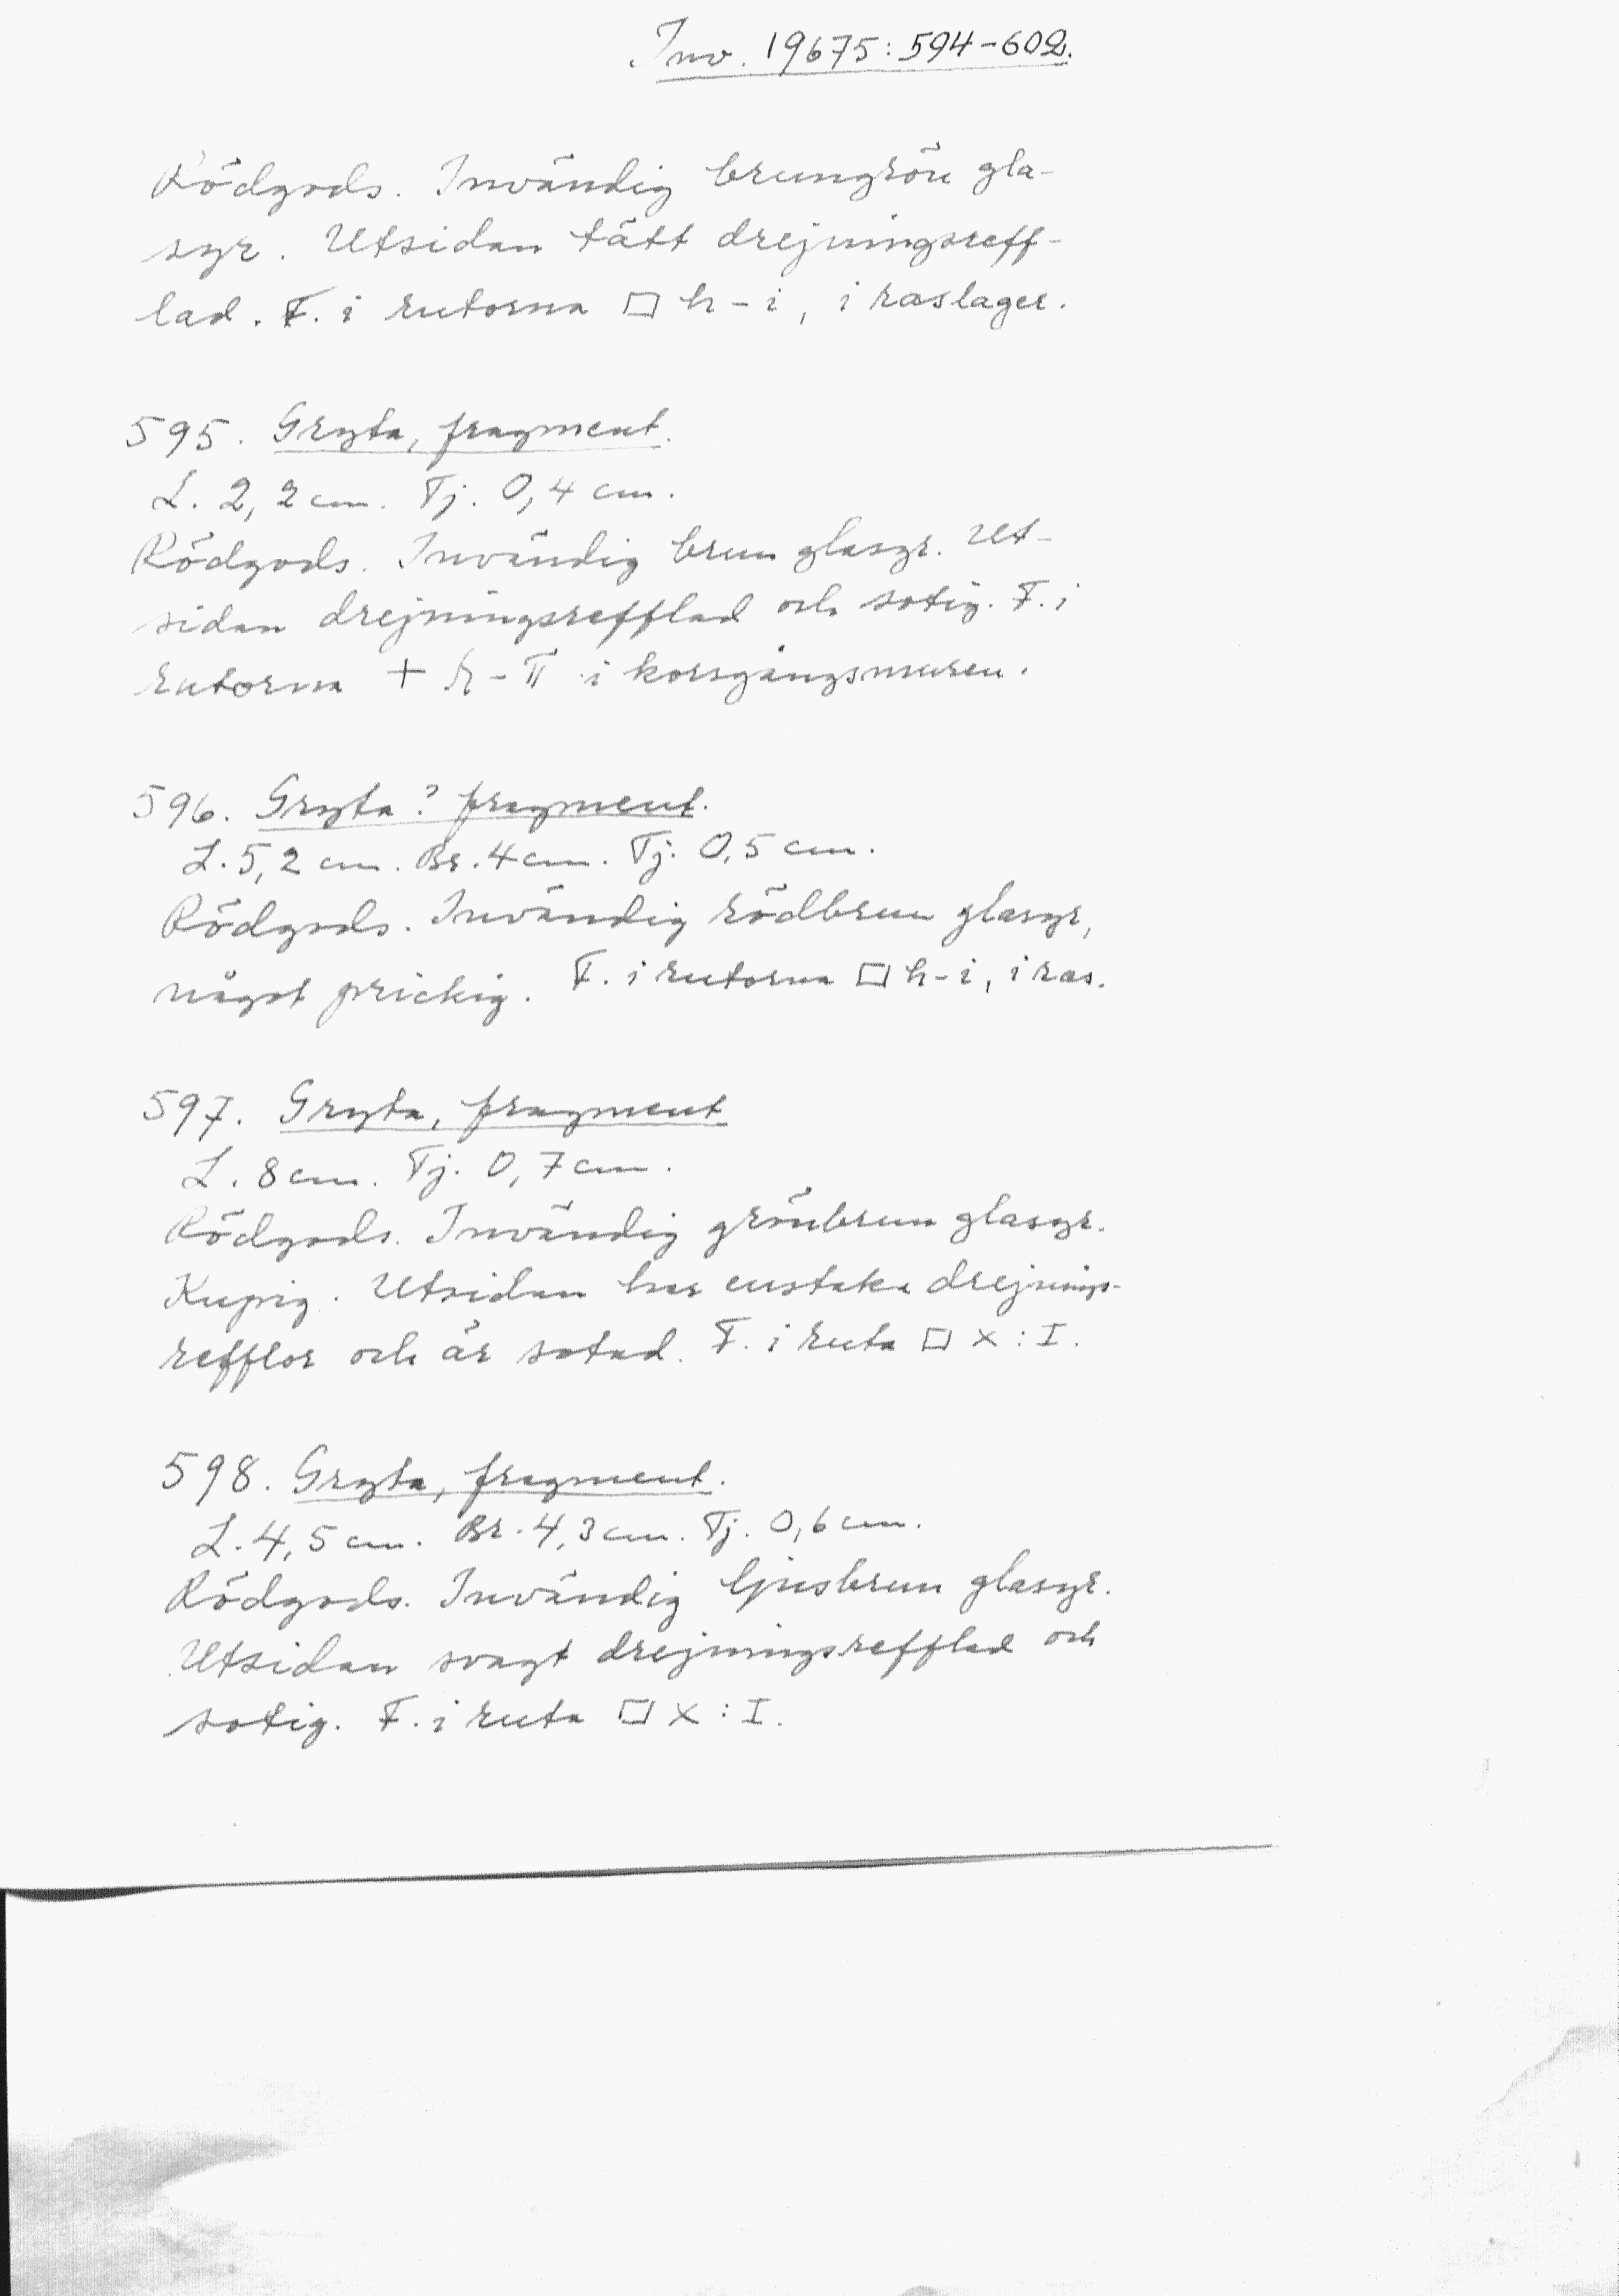 Inv. 19675:594-602.
Rödgods. Invändig brungrön gla-
syr. Utsidan tätt drejningsreff-
lad. F. i rutorna □ h-i, i raslager.
595. Gryta, fragment.
L. 2,2 cm. Tj. 0,4 cm.
Rödgods. Invändig brun glasyr. Ut-
sidan drejningsrefflad och sotig. F. i
rutorna + -II i korsgångsmuren.
596. Gryta? fragment.
L. 5,2 cm. Br. 4 cm. Tj. 0,5 cm.
Rödgods. Invändig rödbrun glasyr,
något prickig. F. i rutorna □ h-i, i ras.
597. Gryta, fragment
L. 8 cm. Tj. 0,7 cm.
Rödgods. Invändig grönbrun glasyr.
Kupig. Utsidan har enstaka drejnings-
refflor och är sotad. F. i ruta □ x:I.
598. Gryta, fragment.
L. 4,5 cm. Br. 4,3 cm. Tj. 0,6 cm.
Rödgods. Invändig ljusbrun glasyr.
Utsidan svagt drejningsrefflad och
sotig. F. i ruta □ x:I.